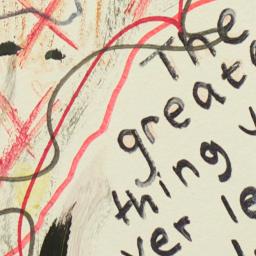 The
greate
thing y
ver le